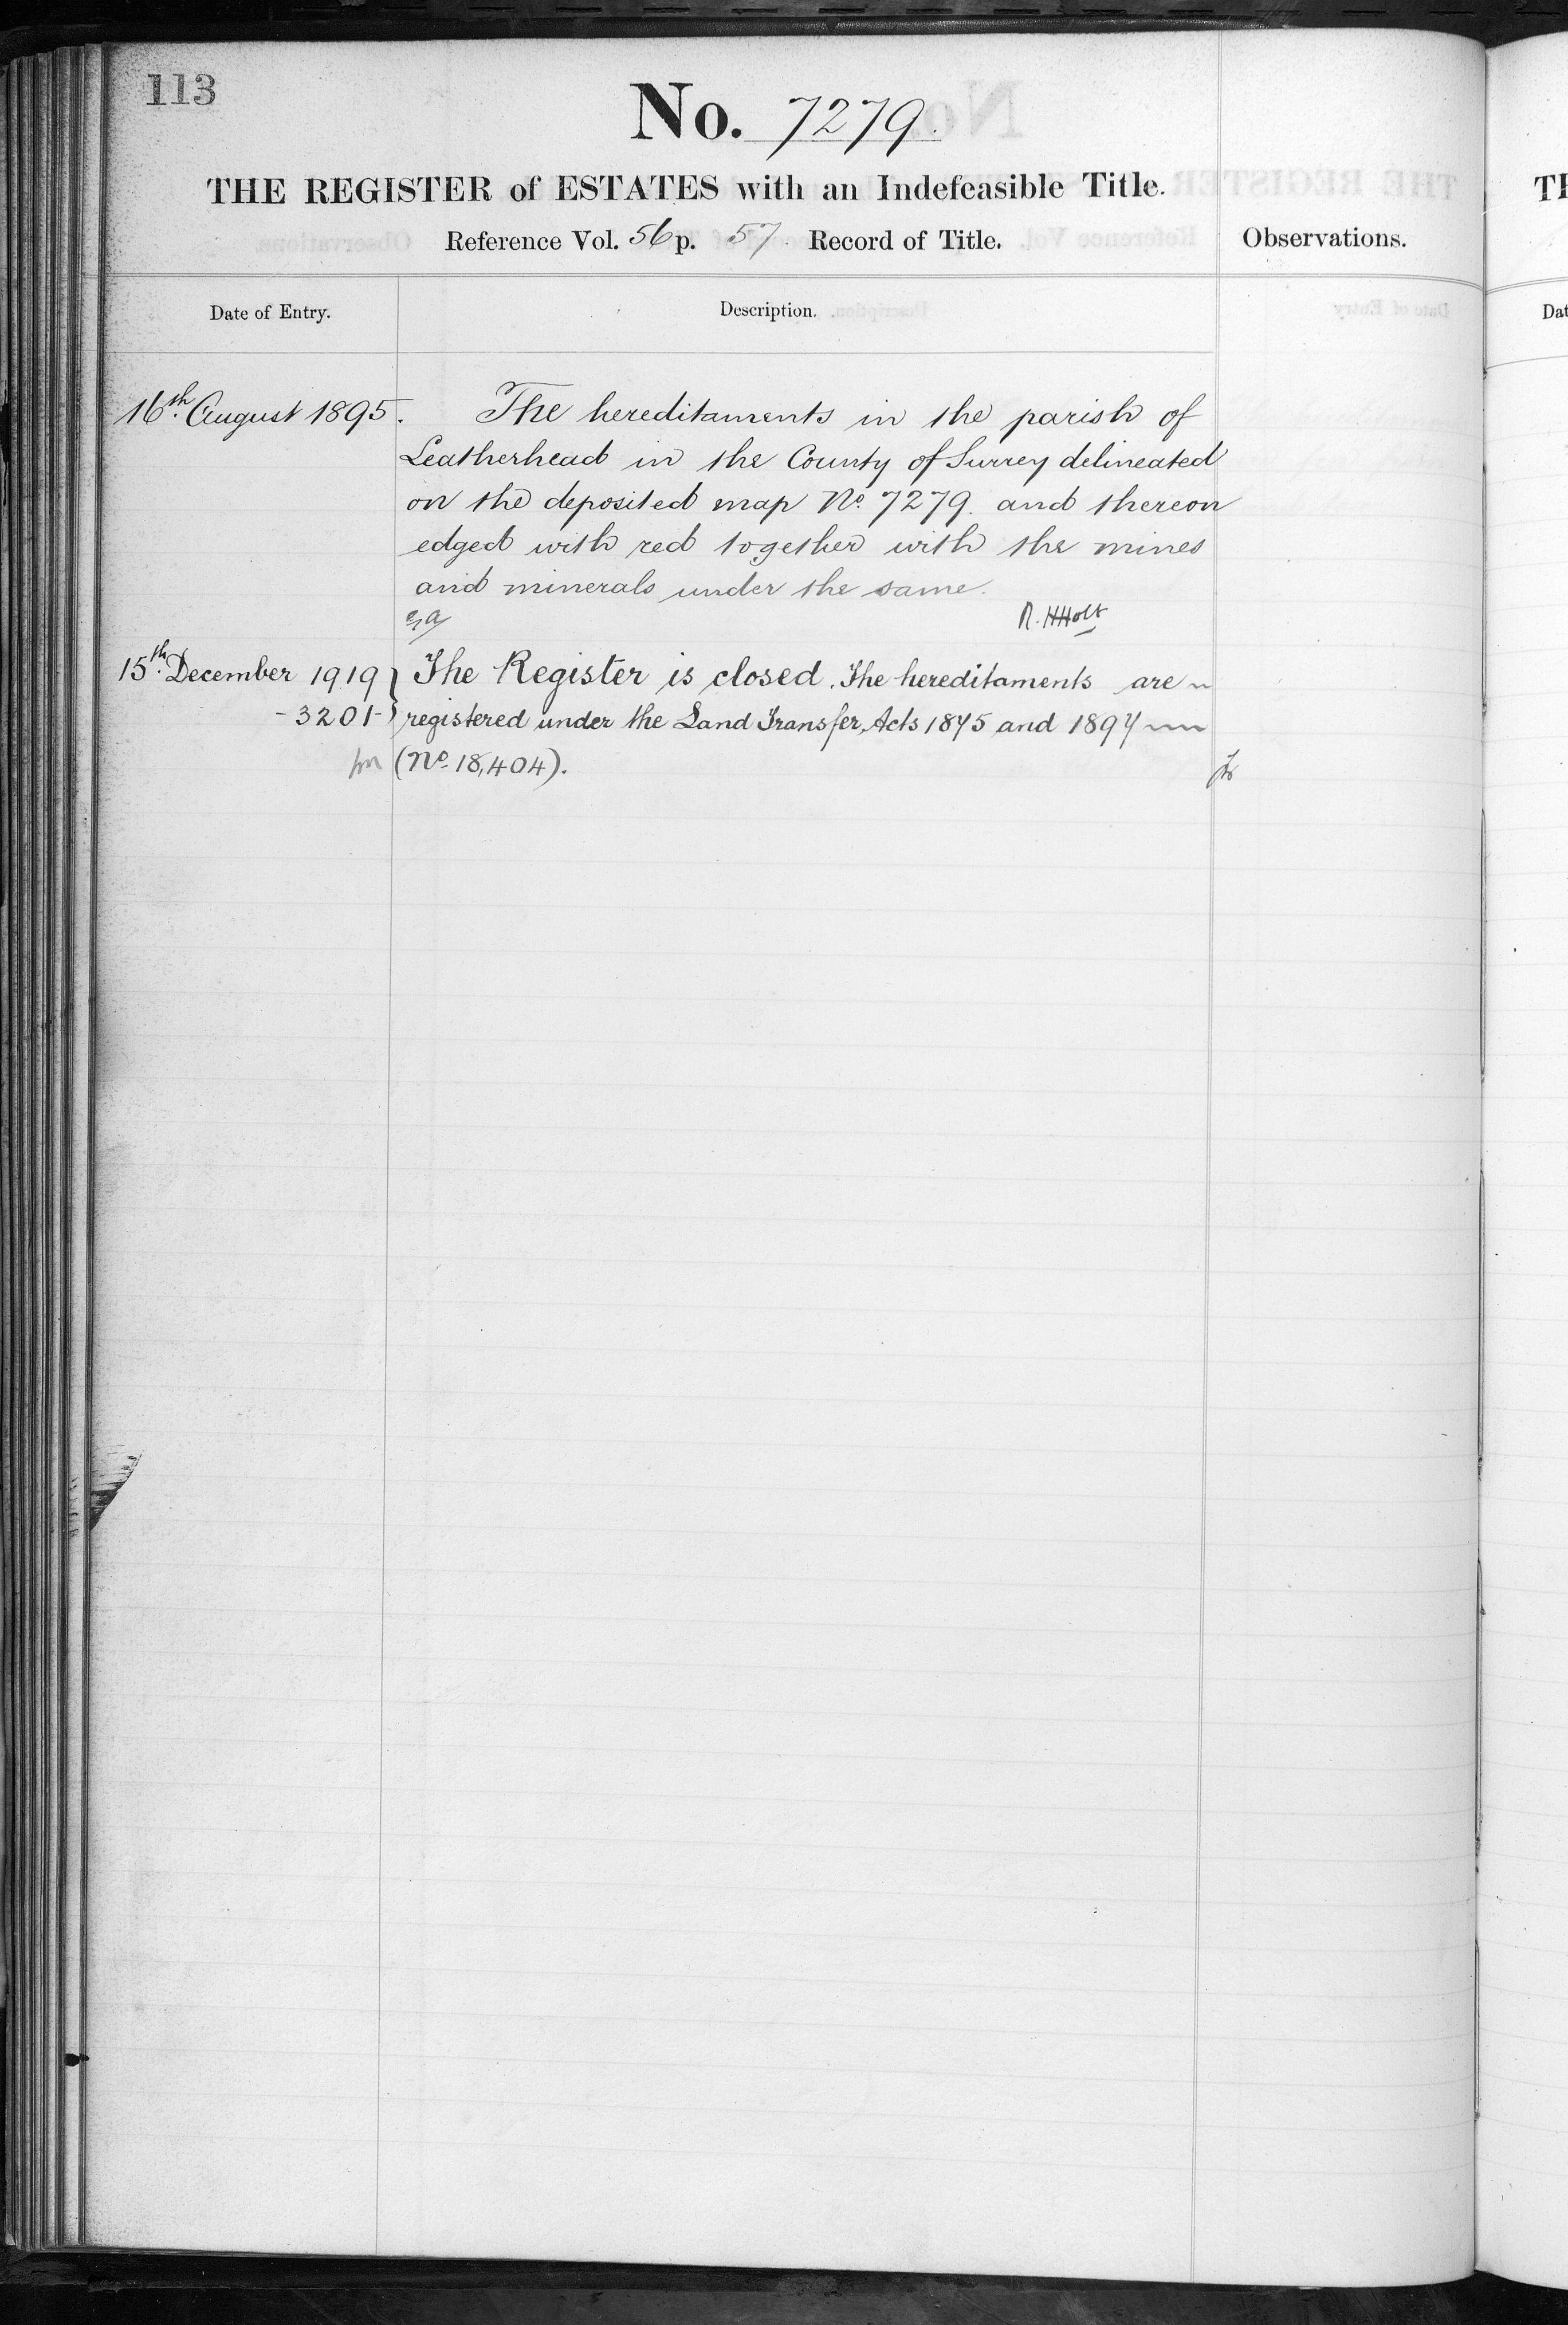 113
No. 7279.
THE REGISTER of ESTATES with an Indefeasible Title.
Reference Vol. 56 p. 57 Record of Title. Observations.
Date of Entry. Description.
16th August 1895. The hereditaments in the parish of
Leatherhead in the County of Surrey delineated
on the deposited map No. 7279. and thereon
edged with red together with the mines
and minerals under the same.
R. H Holt
15th December 1919 } The Register is closed. The hereditaments are
-3201- } registered under the Land Transfer Acts 1875 and 1897
(No. 18,404).